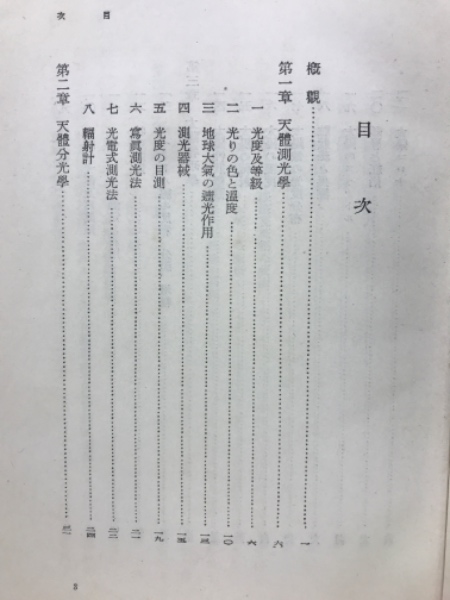 目次
目次
概觀 一
第一章 天體測光學 六
一 光度及等級 六
二 光りの色と溫度 一〇
三 地球大氣の遮光作用 一三
四 測光器械 一五
五 光度の目測 一九
六 寫眞測光法 二一
七 光電式測光法 二三
八 輻射計 二四
第二章 天體分光學
3